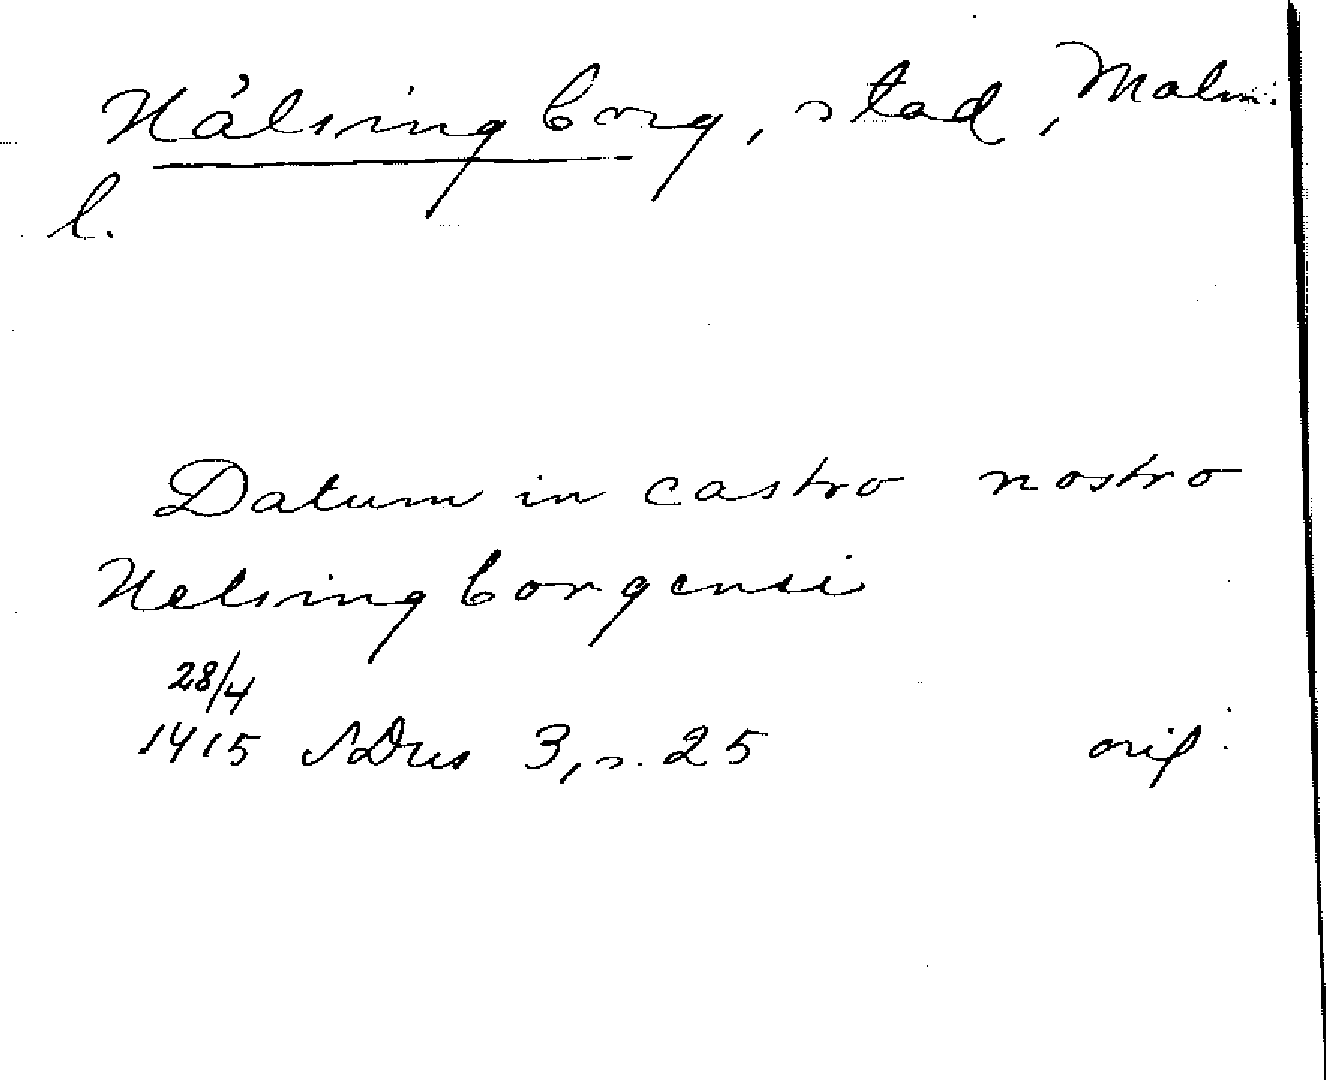 Hälsingborg, stad, Malm:
l.
Datum in castro nostro
Helsingborgensi
28/4
1415 SDns 3, s. 25 orig: